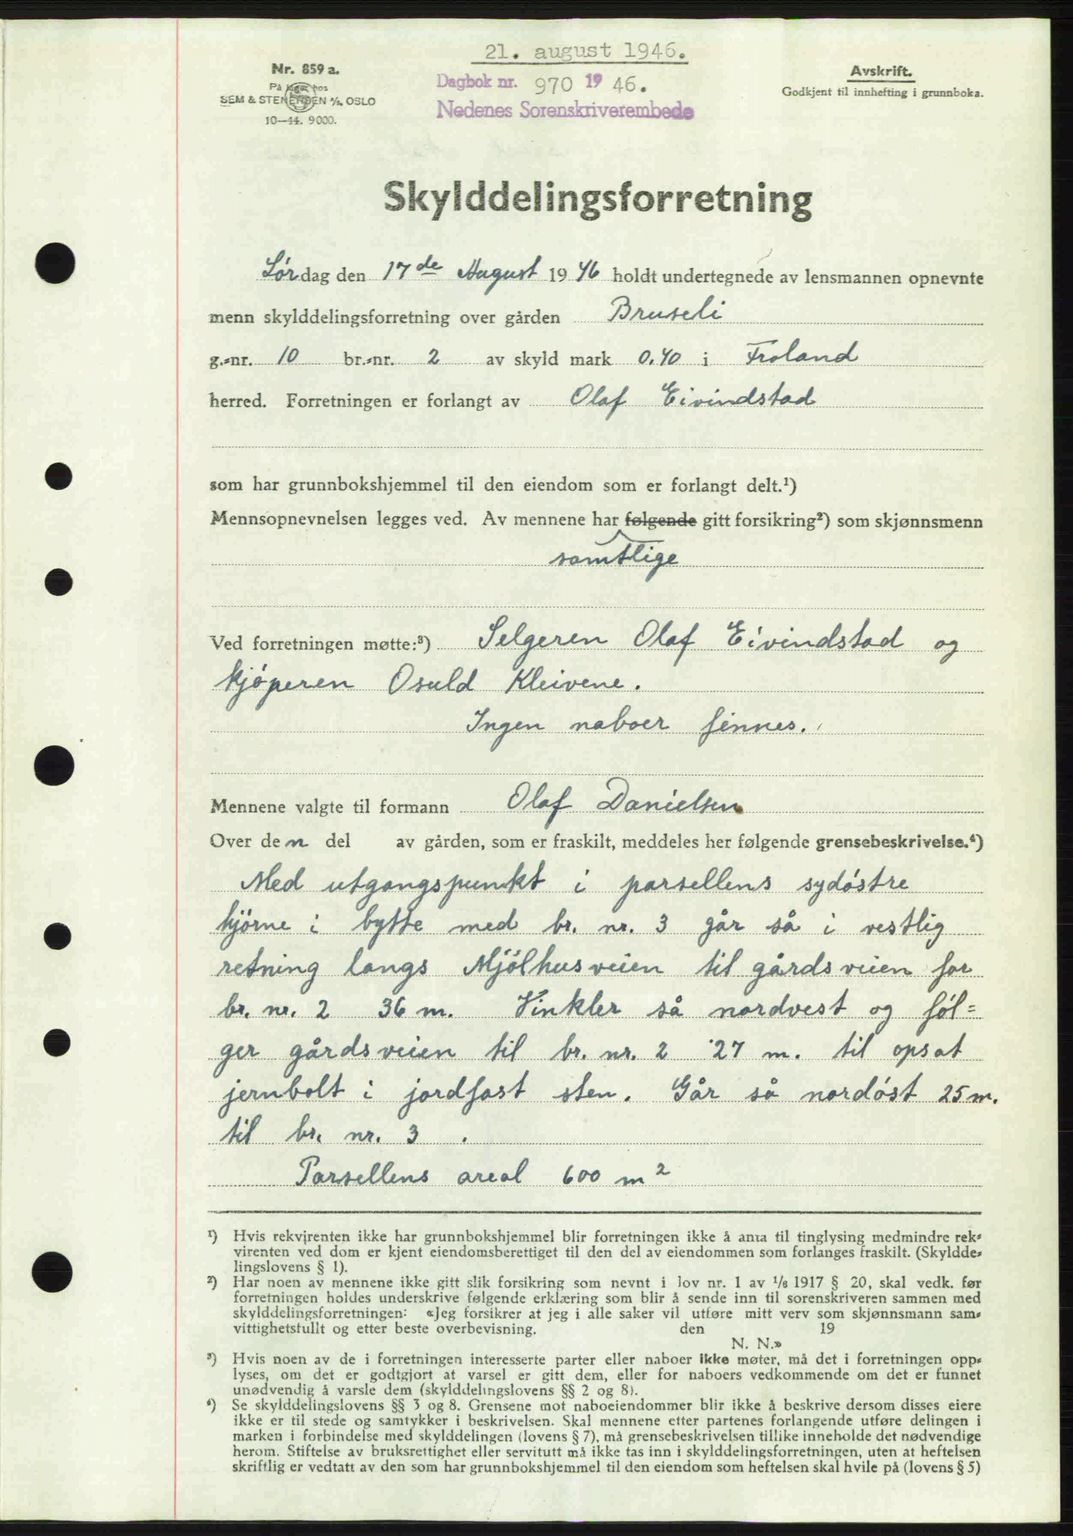 21. august 1946.
Nr. 859 a.
På lager hos
SEM & STENERSEN A/S, OSLO
10—44. 9000.
Dagbok nr. 970 19 46.
Nedenes Sorenskriverembede
Avskrift.
Godkjent til innhefting i grunnboka.
Skylddelingsforretning
Lørdag den 17de August 1946 holdt undertegnede av lensmannen opnevnte
menn skylddelingsforretning over gården Bruseli
g.-nr. 10 br.-nr. 2 av skyld mark 0.40 i Froland
herred. Forretningen er forlangt av Olaf Eivindstad
som har grunnbokshjemmel til den eiendom som er forlangt delt.¹)
Mennsopnevnelsen legges ved. Av mennene har følgende gitt forsikring²) som skjønnsmenn
samtlige
Ved forretningen møtte:³) Selgeren Olaf Eivindstad og
kjøperen Osuld Kleivene.
Ingen naboer finnes.
Mennene valgte til formann Olaf Danielsen
Over den del av gården, som er fraskilt, meddeles her følgende grensebeskrivelse.⁴)
Med utgangspunkt i parsellens sydøstre
hjørne i bytte med br. nr. 3 går så i vestlig
retning langs Mjølhusveien til gårdsveien for
br. nr. 2 36 m. Vinkler så nordvest og føl-
ger gårdsveien til br. nr. 2 27 m. til opsat
jernbolt i jordfast sten. Går så nordøst 25 m.
til br. nr. 3 .
Parsellens areal 600 m²
¹) Hvis rekvirenten ikke har grunnbokshjemmel blir forretningen ikke å anta til tinglysing medmindre rek-
virenten ved dom er kjent eiendomsberettiget til den del av eiendommen som forlanges fraskilt. (Skyldde-
lingslovens § 1).
²) Har noen av mennene ikke gitt slik forsikring som nevnt i lov nr. 1 av 1/8 1917 § 20, skal vedk. før
forretningen holdes underskrive følgende erklæring som blir å sende inn til sorenskriveren sammen med
skylddelingsforretningen: «Jeg forsikrer at jeg i alle saker vil utføre mitt verv som skjønnsmann sam-
vittighetsfullt og etter beste overbevisning. den 19
N. N.»
³) Hvis noen av de i forretningen interesserte parter eller naboer ikke møter, må det i forretningen opp-
lyses, om det er godtgjort at varsel er gitt dem, eller for naboers vedkommende om det er funnet
unødvendig å varsle dem (skylddelingslovens §§ 2 og 8).
⁴) Se skylddelingslovens §§ 3 og 8. Grensene mot naboeiendommer blir ikke å beskrive dersom disses eiere
ikke er til stede og samtykker i beskrivelsen. Skal mennene etter partenes forlangende utføre delingen i
marken i forbindelse med skylddelingen (lovens § 7), må grensebeskrivelsen tillike inneholde det nødvendige
herom. Stiftelse av bruksrettighet eller servitutt må ikke tas inn i skylddelingsforretningen, uten at heftelsen
skriftlig er vedtatt av den som har grunnbokshjemmel til den eiendom som heftelsen skal hvile på (lovens § 5)